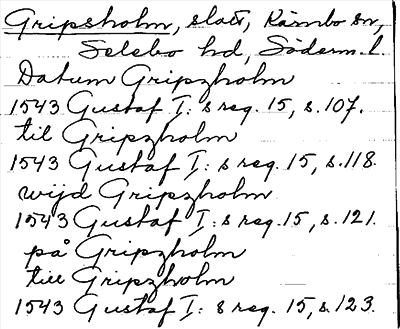 Gripsholm, slott, Kärnbo sn,
Selebo hd, Söderm. l.
Datum Gripzholm
1543 Gustaf I: s reg. 15, s. 107.
til Gripzholm
1543 Gustaf I: s reg. 15, s. 118.
wijd Gripzholm
1543 Gustaf I: s reg. 15, s. 121.
på Gripzholm
till Gripzholm
1543 Gustaf I: s reg. 15, s. 123.